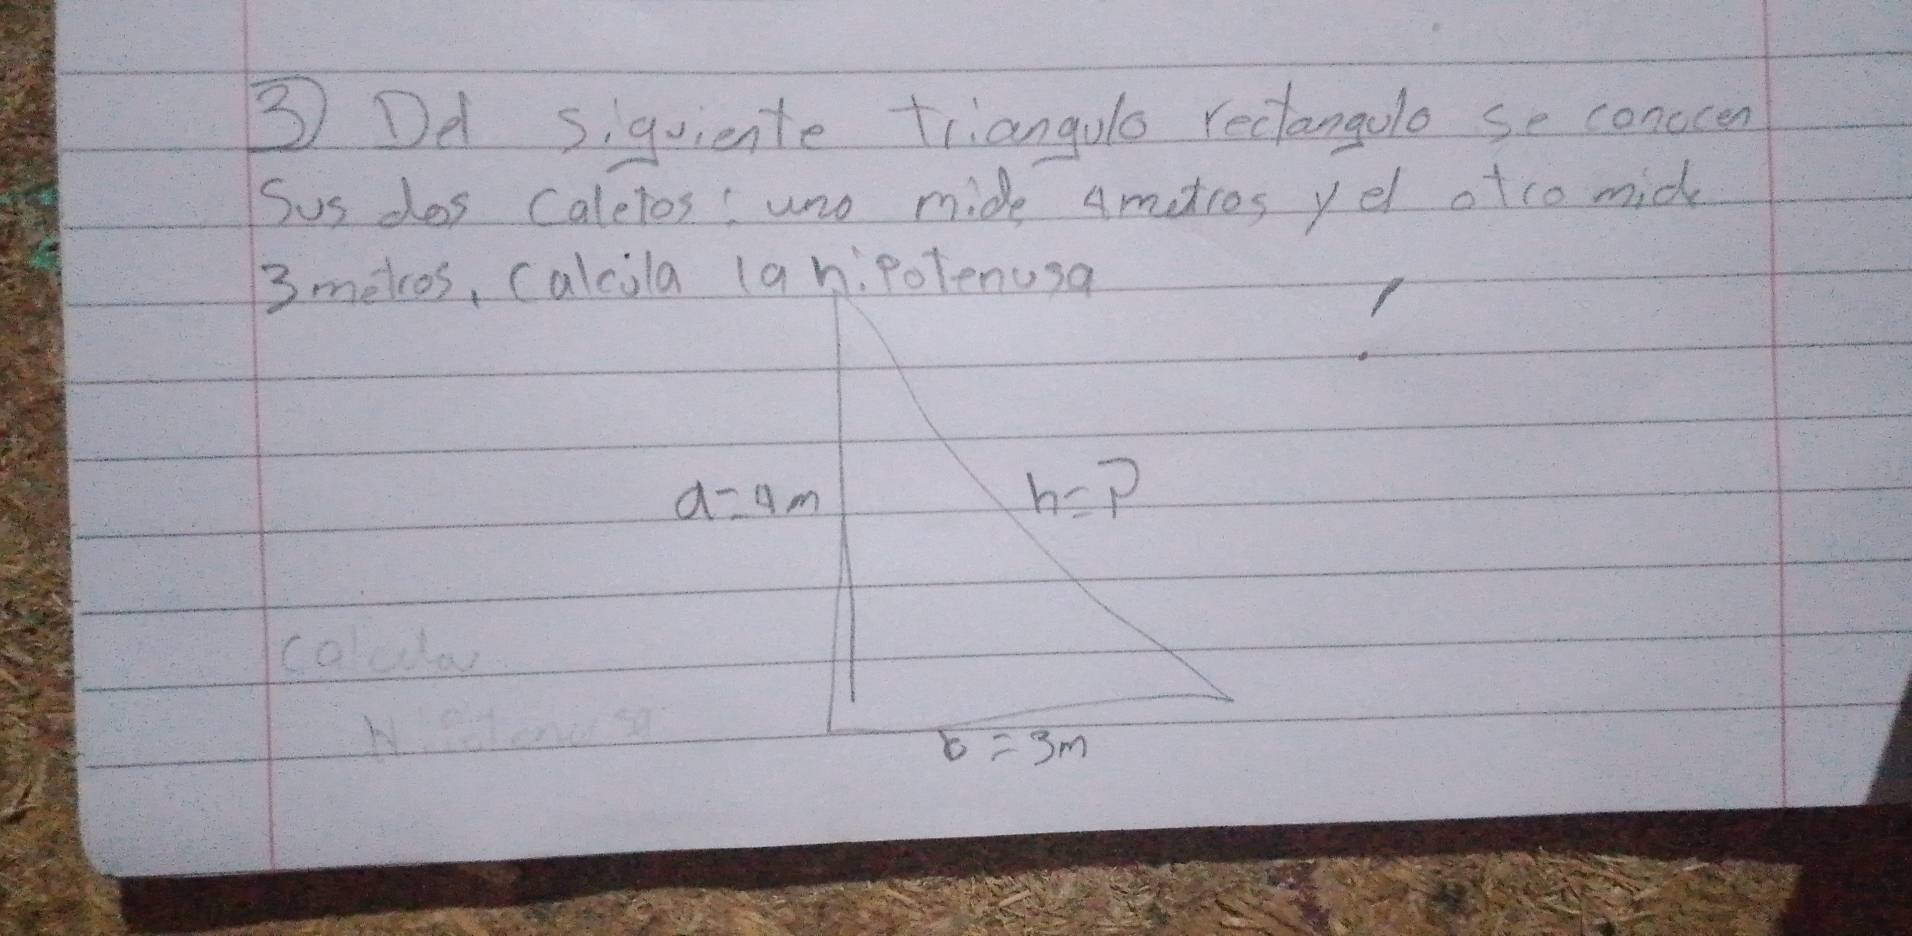 3) Del siguiente triangulo rectangulo se conocen
Sus dos Catetos: uno mide 4 metros y el otro mide
3 metros, Calcula la hipotenusa
a=4m
h=?
Calcular
Hipotenusa
b=3m